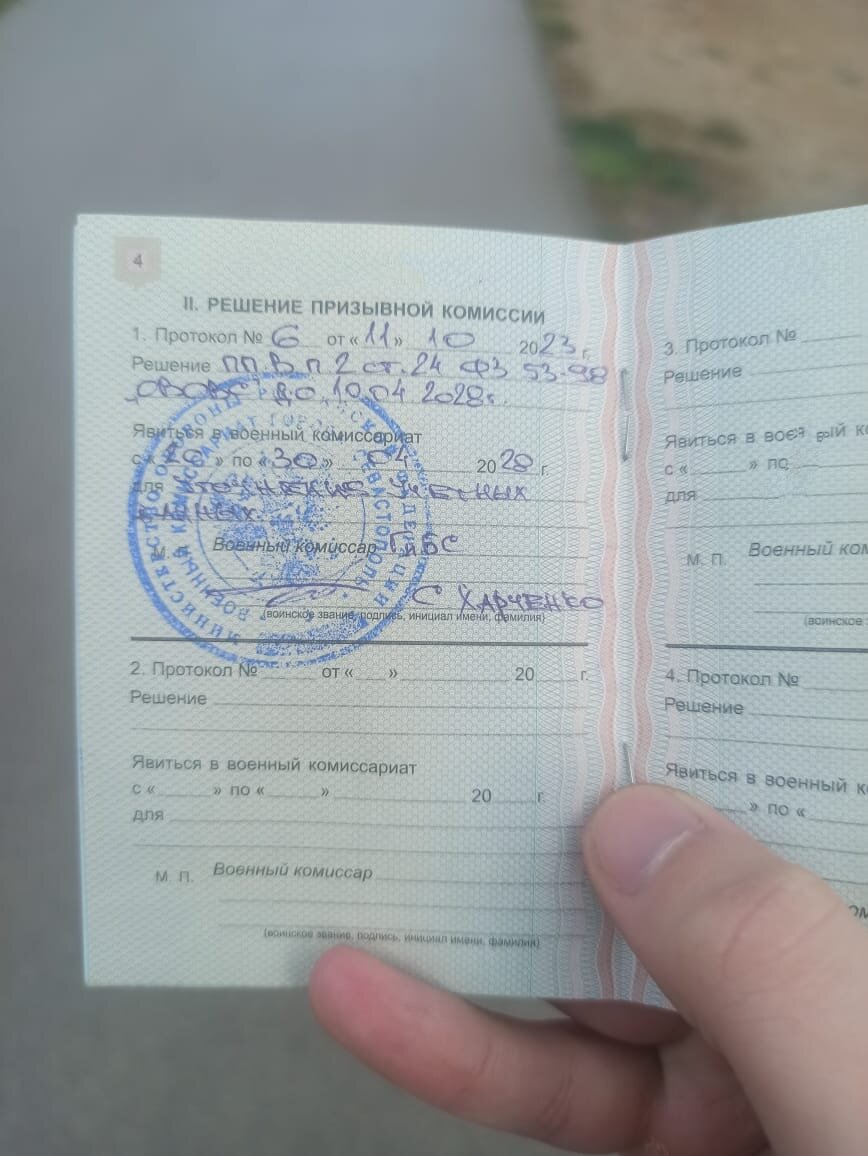 4
II. РЕШЕНИЕ ПРИЗЫВНОЙ КОМИССИИ
1. Протокол № 6 от «11» 10 2023 г.
Решение ПП. В п 2 ст. 24 ФЗ 53-98
до 10.04 2028 г.
Явиться в военный комиссариат
с « » по «30» 04 2028 г.
для уточнения учетных
данных.
М. Военный комиссар ГиБС
С Харченко
(воинское звание, подпись, инициал имени, фамилия)
2. Протокол № от « » 20 г.
Решение
Явиться в военный комиссариат
с « » по « » 20 г.
для
М. П. Военный комиссар
(воинское звание, подпись, инициал имени, фамилия)
3. Протокол №
Решение
Явиться в военный
с « » по
для
М. П. Военный
(воинское
4. Протокол №
Решение
Явиться в военный
» по «